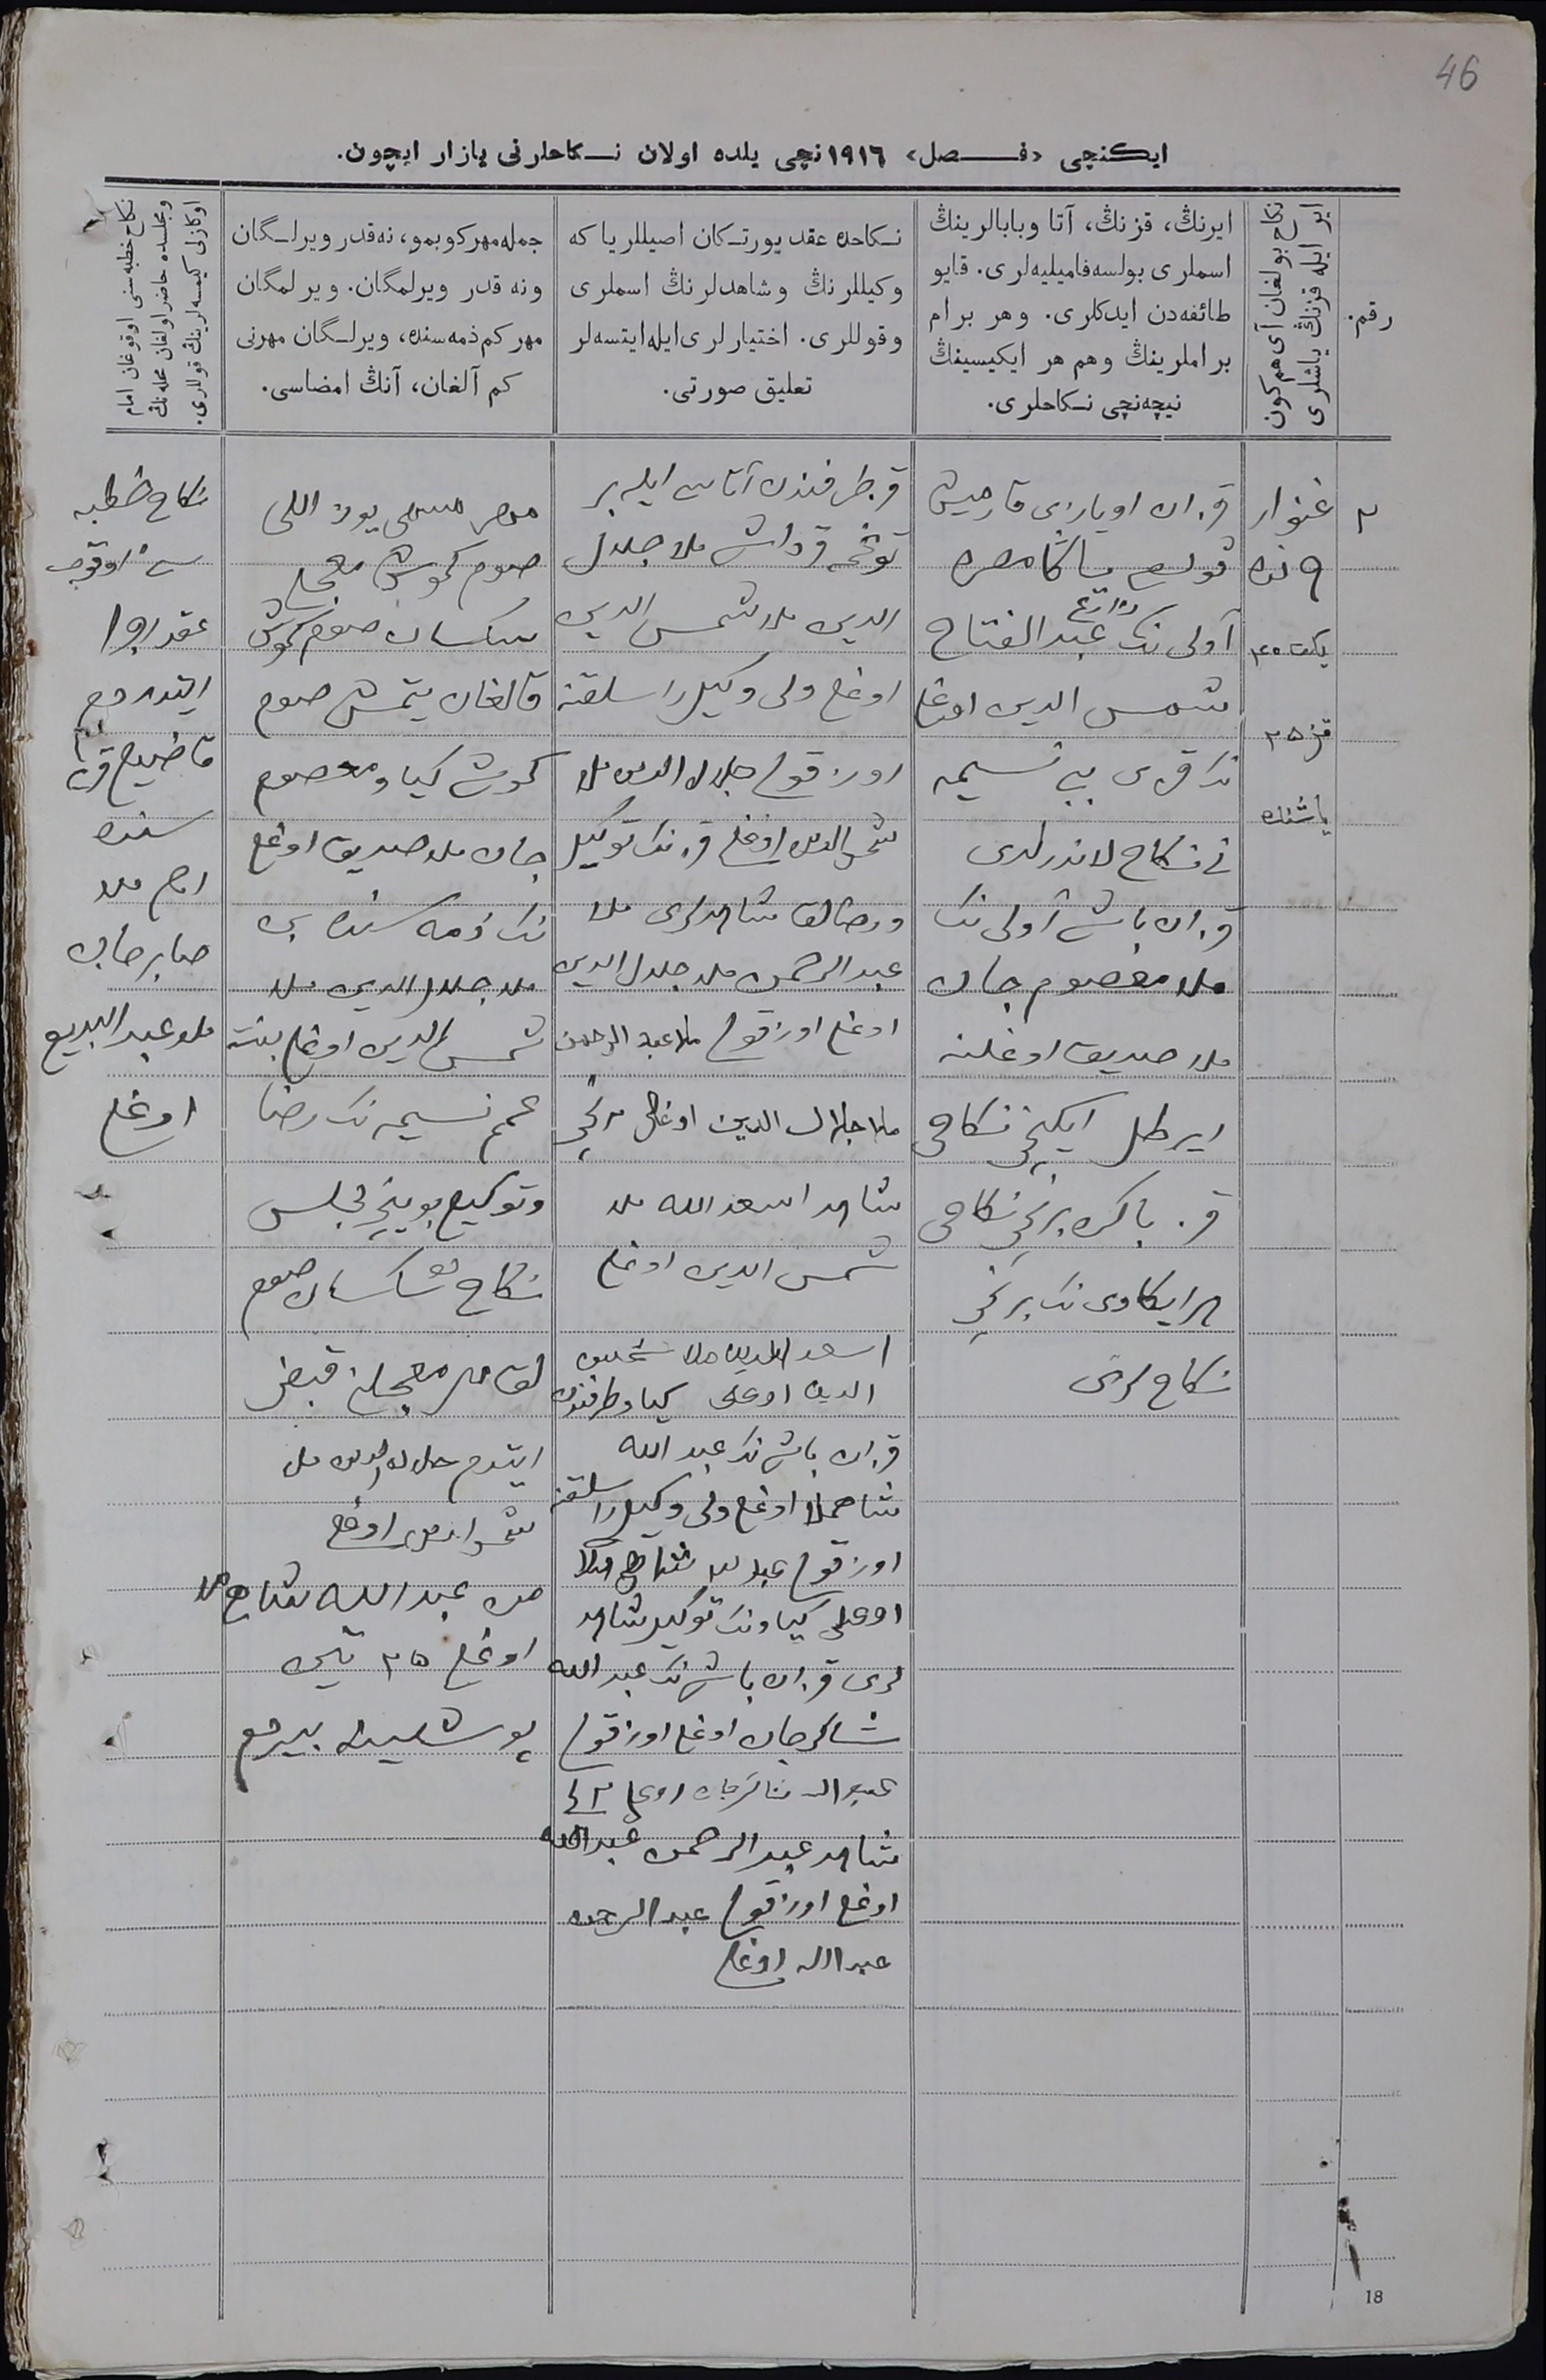 46
ایکنچی «فـصل» ١٩١٦ نچی یلده اولان نـكاحلرنی یازار ایچون.
رقم.
نكاح بولغان آی هم كون
ایر ایله قزنڭ یاشلری
ایرنڭ، قزنڭ، آتا وبابالرینڭ
اسملری بولسه فامیلیه‌لری. قایو
طائفه‌دن ایدكلری. وهر برام
براملرینڭ وهم هر ایكیسینڭ
نیچه‌نچی نـكاحلری.
نـكاحده عقد یورتـكان اصیللر یا كه
وكیللرنڭ وشاهدلرنڭ اسملری
وقوللری. اختیارلری ایله ایتسه‌لر
تعلیق صورتی.
جمله مهر كوبمو، نه قدر ویرلـگان
ونه قدر ویرلمگان. ویرلمگان
مهر كم ذمه سنده، ویرلـگان مهرنی
كم آلغان، آنڭ امضاسی.
نكاح خطبه سنی اوقوغان امام
ومجلسده حاضر اولغان محله‌نڭ
اوكازلی كیمسه‌لرینڭ قوللری.
٢
غنوار
٩ نده
یكت ٣٠
قز ٢٥
یاشنده
قزان اویازی
آولی نك عبد الفتاح
شمس الدین اوغلی
نك قزی بی بی نسیمه
نی نكاح لاندرلدی
قزان باش آولی نك
ملا معصوم جان
ملا صدیق اوغلنه
ایر طل ایكنچی نكاحی
قز باكره برنچی نكاحی
هر ایكاوی نك برنچی
نكاح لری
قز طرفندن آتاسی ایله بر
توغمه قرداشی ملا جلال
الدین ملا شمس الدین
اوغلی ولی وكیل را سلقنه
اوز قولم جلال الدین ملا
شمس الدین اوغلی قز نك توكیل
ورضالق شاهدلری ملا
عبد الرحمن ملا جلال الدین
اوغلی اوز قولم ملا عبد الرحمن
ملا جلال الدین اوغلی ٢ نچی
شاهد اسعد الله ملا
شمس الدین اوغلی
اسعد الدین ملا شمس
الدین اوغلی كیاو طرفندن
قزان باش نك عبد الله
اوغلی ولی وكیل را سلقنه
اوز قولم عبد الله
اوغلی كیاو نك توكیل شاهد
لری قزان باش نك عبد الله
شاكرجان اوغلی اوز قولم
عبد الله شاكرجان اوغلی ٢ نچی
شاهد عبد الرحمن عبد الله
اوغلی اوز قولم عبد الرحمن
عبد الله اوغلی
مهر مسمی یوز اللی
صوم كموش معجلی
سكسان صوم كموش
قالغان یتمش صوم
كموش كیاو معصوم
جان ملا صدیق اوغلی
نك ذمه سنده بن
ملا جلال الدین ملا
شمس الدین اوغلی بنت
عمم نسیمه نك رضا
وتوكیلی بوینچه مجلس
نكاح ده سكسان صوم
لق مهر معجلنی قبض
ایتدم جلال الدین ملا
شمس الدین اوغلی
من عبد الله
اوغلی ٢٥ تین
پوشلینه بیردم
نكاح خطبه
سی اوقوب
عقد اجرا
ایتدردم
سنده
امام ملا
صابرجان
ملا عبد البدیع
اوغلی
18